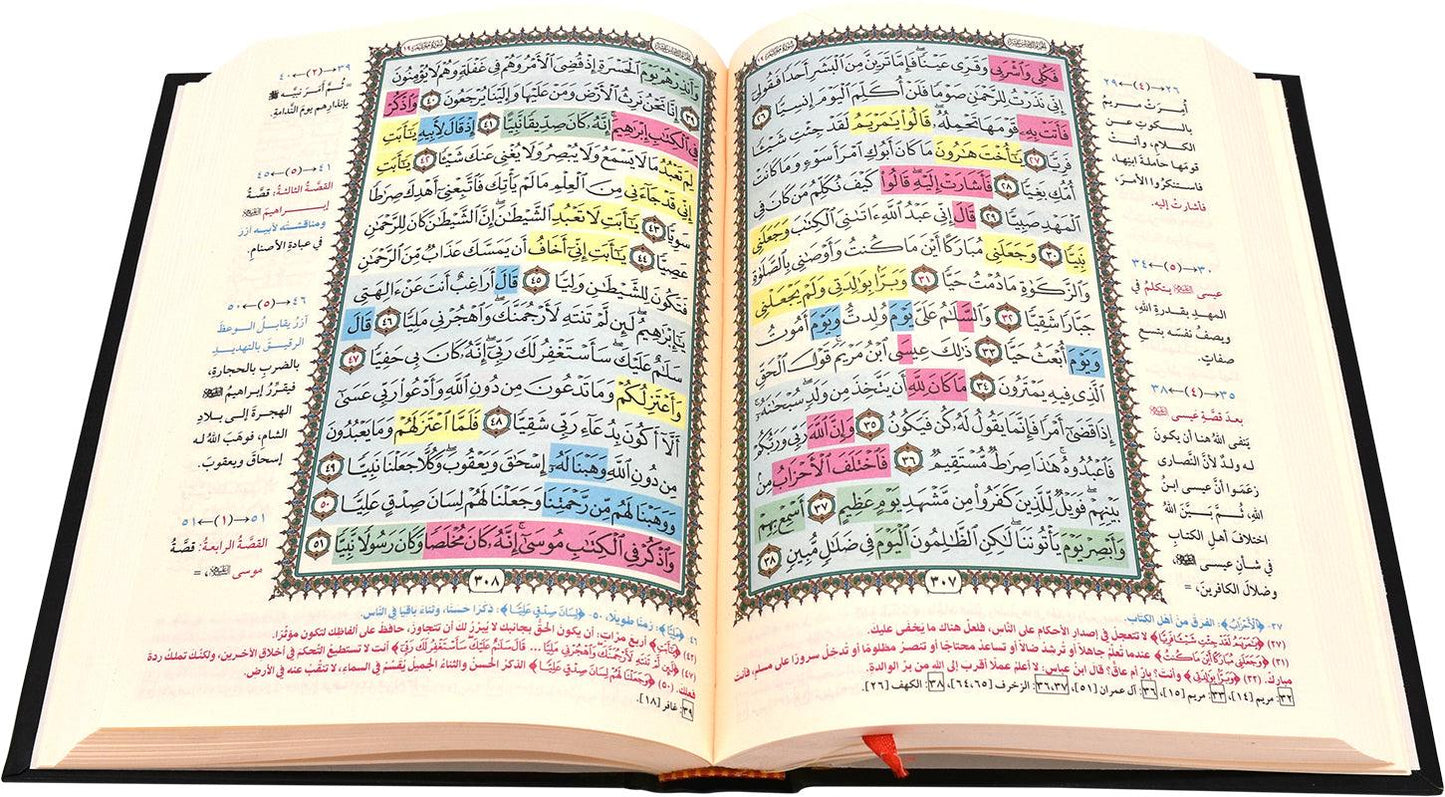 الجزء السادس عشر
سورة مريم ١٩
فَكُلِي وَٱشْرَبِي وَقَرِّي عَيْنًا فَإِمَّا تَرَيِنَّ مِنَ ٱلْبَشَرِ أَحَدًا فَقُولِي
إِنِّي نَذَرْتُ لِلرَّحْمَٰنِ صَوْمًا فَلَنْ أُكَلِّمَ ٱلْيَوْمَ إِنسِيًّا ٢٦
فَأَتَتْ بِهِۦ قَوْمَهَا تَحْمِلُهُۥ قَالُوا۟ يَٰمَرْيَمُ لَقَدْ جِئْتِ شَيْـًٔا
فَرِيًّا ٢٧ يَٰٓأُخْتَ هَٰرُونَ مَا كَانَ أَبُوكِ ٱمْرَأَ سَوْءٍ وَمَا كَانَتْ
أُمُّكِ بَغِيًّا ٢٨ فَأَشَارَتْ إِلَيْهِ قَالُوا۟ كَيْفَ نُكَلِّمُ مَن كَانَ فِي
ٱلْمَهْدِ صَبِيًّا ٢٩ قَالَ إِنِّي عَبْدُ ٱللَّهِ ءَاتَىٰنِيَ ٱلْكِتَٰبَ وَجَعَلَنِي
نَبِيًّا ٣٠ وَجَعَلَنِي مُبَارَكًا أَيْنَ مَا كُنتُ وَأَوْصَٰنِي بِٱلصَّلَوٰةِ
وَٱلزَّكَوٰةِ مَا دُمْتُ حَيًّا ٣١ وَبَرًّۢا بِوَٰلِدَتِي وَلَمْ يَجْعَلْنِي
جَبَّارًا شَقِيًّا ٣٢ وَٱلسَّلَٰمُ عَلَيَّ يَوْمَ وُلِدتُّ وَيَوْمَ أَمُوتُ
وَيَوْمَ أُبْعَثُ حَيًّا ٣٣ ذَٰلِكَ عِيسَى ٱبْنُ مَرْيَمَ قَوْلَ ٱلْحَقِّ
ٱلَّذِي فِيهِ يَمْتَرُونَ ٣٤ مَا كَانَ لِلَّهِ أَن يَتَّخِذَ مِن وَلَدٍ سُبْحَٰنَهُۥٓ
إِذَا قَضَىٰٓ أَمْرًا فَإِنَّمَا يَقُولُ لَهُۥ كُن فَيَكُونُ ٣٥ وَإِنَّ ٱللَّهَ رَبِّي وَرَبُّكُمْ
فَٱعْبُدُوهُ هَٰذَا صِرَٰطٌ مُّسْتَقِيمٌ ٣٦ فَٱخْتَلَفَ ٱلْأَحْزَابُ مِنۢ
بَيْنِهِمْ فَوَيْلٌ لِّلَّذِينَ كَفَرُوا۟ مِن مَّشْهَدِ يَوْمٍ عَظِيمٍ ٣٧ أَسْمِعْ بِهِمْ
وَأَبْصِرْ يَوْمَ يَأْتُونَنَا لَٰكِنِ ٱلظَّٰلِمُونَ ٱلْيَوْمَ فِي ضَلَٰلٍ مُّبِينٍ ٣٨
٣٠٧
٢٦←(٤)→٢٩
أُمِرَتْ مريمُ
بالسكوتِ عن
الكلامِ، وأتتْ
قومَها حاملةً ابنَها،
فاستنكرُوا الأمرَ،
فأشارتْ إليه.
٣٠←(٥)→٣٤
عيسى يتكلمُ في
المهدِ بقدرةِ اللهِ،
ويصفُ نفسَه بتسعِ
صفاتٍ.
٣٥←(٤)→٣٨
بعدَ قصَّةِ عيسى
ينفى اللهُ هنا أن يكونَ
له ولدٌ لأنَّ النَّصارى
زعمُوا أنَّ عيسى ابنُ
اللهِ، ثُمَّ بيَّنَ اللهُ
اختلافَ أهلِ الكتابِ
في شأنِ عيسى
وضلالَ الكافرينَ، =
٣٧- ﴿ٱلْأَحْزَابُ﴾: الفِرَقُ من أهلِ الكتابِ.
(٢٧) لا تتعجل في إصدار الأحكام على النَّاس، فلعلَّ هناك ما يَخفى عليك.
(٣١) ﴿وَجَعَلَنِي مُبَارَكًا أَيْنَ مَا كُنتُ﴾ عندما تُعلِّمُ جاهلًا أو تُرشدُ ضالًا أو تساعدُ محتاجًا أو تنصرُ مظلومًا أو تدخلُ سرورًا على مسلمٍ، فأنت
مباركٌ. (٣٢) ﴿وَبَرًّۢا بِوَٰلِدَتِي﴾ وأنت؟ بارٌّ أم عاقٌّ؟ قال ابنُ عباسٍ: لا أعلمُ عملًا أقربَ إلى اللهِ من برِّ الوالدةِ.
٣٢: مريم [١٤]، ٣٣: مريم [١٥]، ٣٦: آل عمران [٥١]، ٣٦،٣٧: الزخرف [٦٤،٦٥]، ٣٨: الكهف [٢٦].
سورة مريم ١٩
وَأَنذِرْهُمْ يَوْمَ ٱلْحَسْرَةِ إِذْ قُضِيَ ٱلْأَمْرُ وَهُمْ فِي غَفْلَةٍ وَهُمْ لَا يُؤْمِنُونَ
٣٩ إِنَّا نَحْنُ نَرِثُ ٱلْأَرْضَ وَمَنْ عَلَيْهَا وَإِلَيْنَا يُرْجَعُونَ ٤٠ وَٱذْكُرْ
فِي ٱلْكِتَٰبِ إِبْرَٰهِيمَ إِنَّهُۥ كَانَ صِدِّيقًا نَّبِيًّا ٤١ إِذْ قَالَ لِأَبِيهِ يَٰٓأَبَتِ
لِمَ تَعْبُدُ مَا لَا يَسْمَعُ وَلَا يُبْصِرُ وَلَا يُغْنِي عَنكَ شَيْـًٔا ٤٢ يَٰٓأَبَتِ
إِنِّي قَدْ جَآءَنِي مِنَ ٱلْعِلْمِ مَا لَمْ يَأْتِكَ فَٱتَّبِعْنِيٓ أَهْدِكَ صِرَٰطًا
سَوِيًّا ٤٣ يَٰٓأَبَتِ لَا تَعْبُدِ ٱلشَّيْطَٰنَ إِنَّ ٱلشَّيْطَٰنَ كَانَ لِلرَّحْمَٰنِ
عَصِيًّا ٤٤ يَٰٓأَبَتِ إِنِّيٓ أَخَافُ أَن يَمَسَّكَ عَذَابٌ مِّنَ ٱلرَّحْمَٰنِ
فَتَكُونَ لِلشَّيْطَٰنِ وَلِيًّا ٤٥ قَالَ أَرَاغِبٌ أَنتَ عَنْ ءَالِهَتِي
يَٰٓإِبْرَٰهِيمُ لَئِن لَّمْ تَنتَهِ لَأَرْجُمَنَّكَ وَٱهْجُرْنِي مَلِيًّا ٤٦ قَالَ
سَلَٰمٌ عَلَيْكَ سَأَسْتَغْفِرُ لَكَ رَبِّيٓ إِنَّهُۥ كَانَ بِي حَفِيًّا ٤٧
وَأَعْتَزِلُكُمْ وَمَا تَدْعُونَ مِن دُونِ ٱللَّهِ وَأَدْعُوا۟ رَبِّي عَسَىٰٓ
أَلَّآ أَكُونَ بِدُعَآءِ رَبِّي شَقِيًّا ٤٨ فَلَمَّا ٱعْتَزَلَهُمْ وَمَا يَعْبُدُونَ
مِن دُونِ ٱللَّهِ وَهَبْنَا لَهُۥٓ إِسْحَٰقَ وَيَعْقُوبَ وَكُلًّا جَعَلْنَا نَبِيًّا ٤٩
وَوَهَبْنَا لَهُم مِّن رَّحْمَتِنَا وَجَعَلْنَا لَهُمْ لِسَانَ صِدْقٍ عَلِيًّا ٥٠
وَٱذْكُرْ فِي ٱلْكِتَٰبِ مُوسَىٰٓ إِنَّهُۥ كَانَ مُخْلَصًا وَكَانَ رَسُولًا نَّبِيًّا ٥١
٣٠٨
٣٩←(٢)→٤٠
= ثُمَّ أمرَ نبيَّه ﷺ
بإنذارِهم يومَ النَّدامةِ.
٤١←(٥)→٤٥
القصَّةُ الثالثةُ: قصَّةُ
إبراهيمَ
ومناقشتُه لأبيه آزرَ
في عبادةِ الأصنامِ.
٤٦←(٥)→٥٠
آزرُ يقابلُ الوعظَ
الرقيقَ بالتهديدِ
بالضربِ بالحجارةِ،
فيقرِّرُ إبراهيمُ
الهجرةَ إلى بلادِ
الشامِ، فوهبَ اللهُ له
إسحاقَ ويعقوبَ.
٥١←(١)→٥١
القصَّةُ الرابعةُ: قصَّةُ
موسى ، =
٤٦- ﴿مَلِيًّا﴾: زمنًا طويلًا، ٥٠- ﴿لِسَانَ صِدْقٍ عَلِيًّا﴾: ذكرًا حسنًا، وثناءً باقيًا في النَّاسِ.
(٤٢) ﴿يَٰٓأَبَتِ﴾ أربع مرَّاتٍ: أن يكونَ الحقُّ بجانبِك لا يُبررُ لك أن تتجاوزَ، حافظ على ألفاظِك لتكونَ مؤثرًا.
(٤٧) ﴿لَئِن لَّمْ تَنتَهِ لَأَرْجُمَنَّكَ وَٱهْجُرْنِي مَلِيًّا ... قَالَ سَلَٰمٌ عَلَيْكَ سَأَسْتَغْفِرُ لَكَ رَبِّيٓ﴾ أنت لا تستطيعُ التَّحكمَ في أخلاقِ الآخرينَ، ولكنَّك تملكُ ردةَ
فعلِك. (٥٠) ﴿وَجَعَلْنَا لَهُمْ لِسَانَ صِدْقٍ عَلِيًّا﴾ الذكرُ الحَسنُ والثناءُ الجميلُ يُقسَّمُ في السماءِ، لا تنقِّبْ عنه في الأرضِ.
٣٩: غافر [١٨].